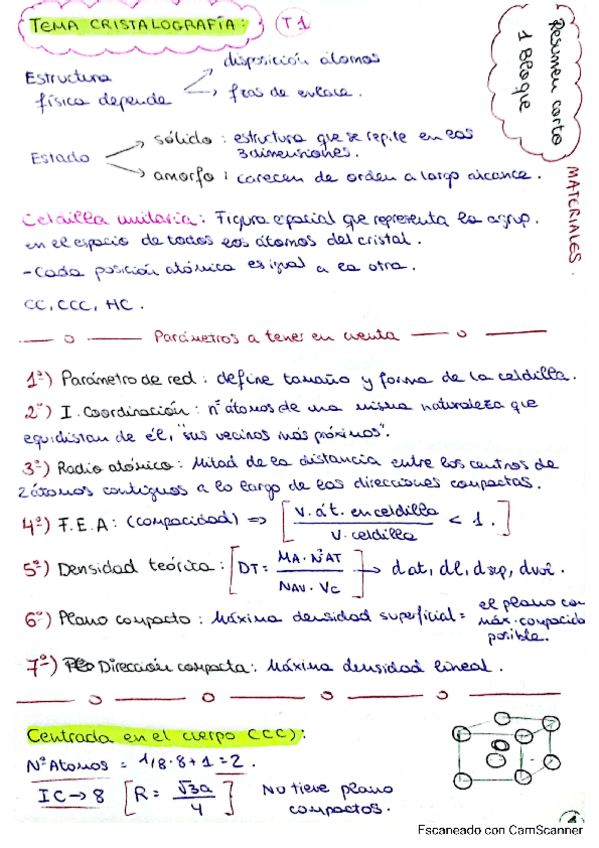 TEMA CRISTALOGRAFÍA: T1
Resumen corto
1 Bloque
MATERIALES.
Estructura física depende
disposición átomos
fzas de enlace.
Estado
sólido: estructura que se repite en las
3 dimensiones.
amorfo: carecen de orden a largo alcance.
Celdilla unitaria: Figura espacial que representa la agrup.
en el espacio de todos los átomos del cristal.
- Cada posición atómica es igual a la otra.
CC, CCC, HC.
Parámetros a tener en cuenta
1º) Parámetro de red: define tamaño y forma de la celdilla.
2º) I. Coordinación: nº átomos de una misma naturaleza que
equidistan de él, "sus vecinos más próximos".
3º) Radio atómico: Mitad de la distancia entre los centros de
2 átomos contiguos a lo largo de las direcciones compactas.
4º) F.E.A: (compacidad) => [V. át. en celdilla / V. celdilla < 1.]
5º) Densidad teórica: [DT = MA·NºAT / NAV·VC] → dat, dl, dsup, dvol.
6º) Plano compacto: Máxima densidad superficial = el plano con
máx. compacida
posible.
7º) Dirección compacta: Máxima densidad lineal.
Centrada en el cuerpo (CC):
Nº Átomos = 1/8·8+1 = 2.
IC → 8 [R = √3a / 4] No tiene plano
compactos.
Escaneado con CamScanner